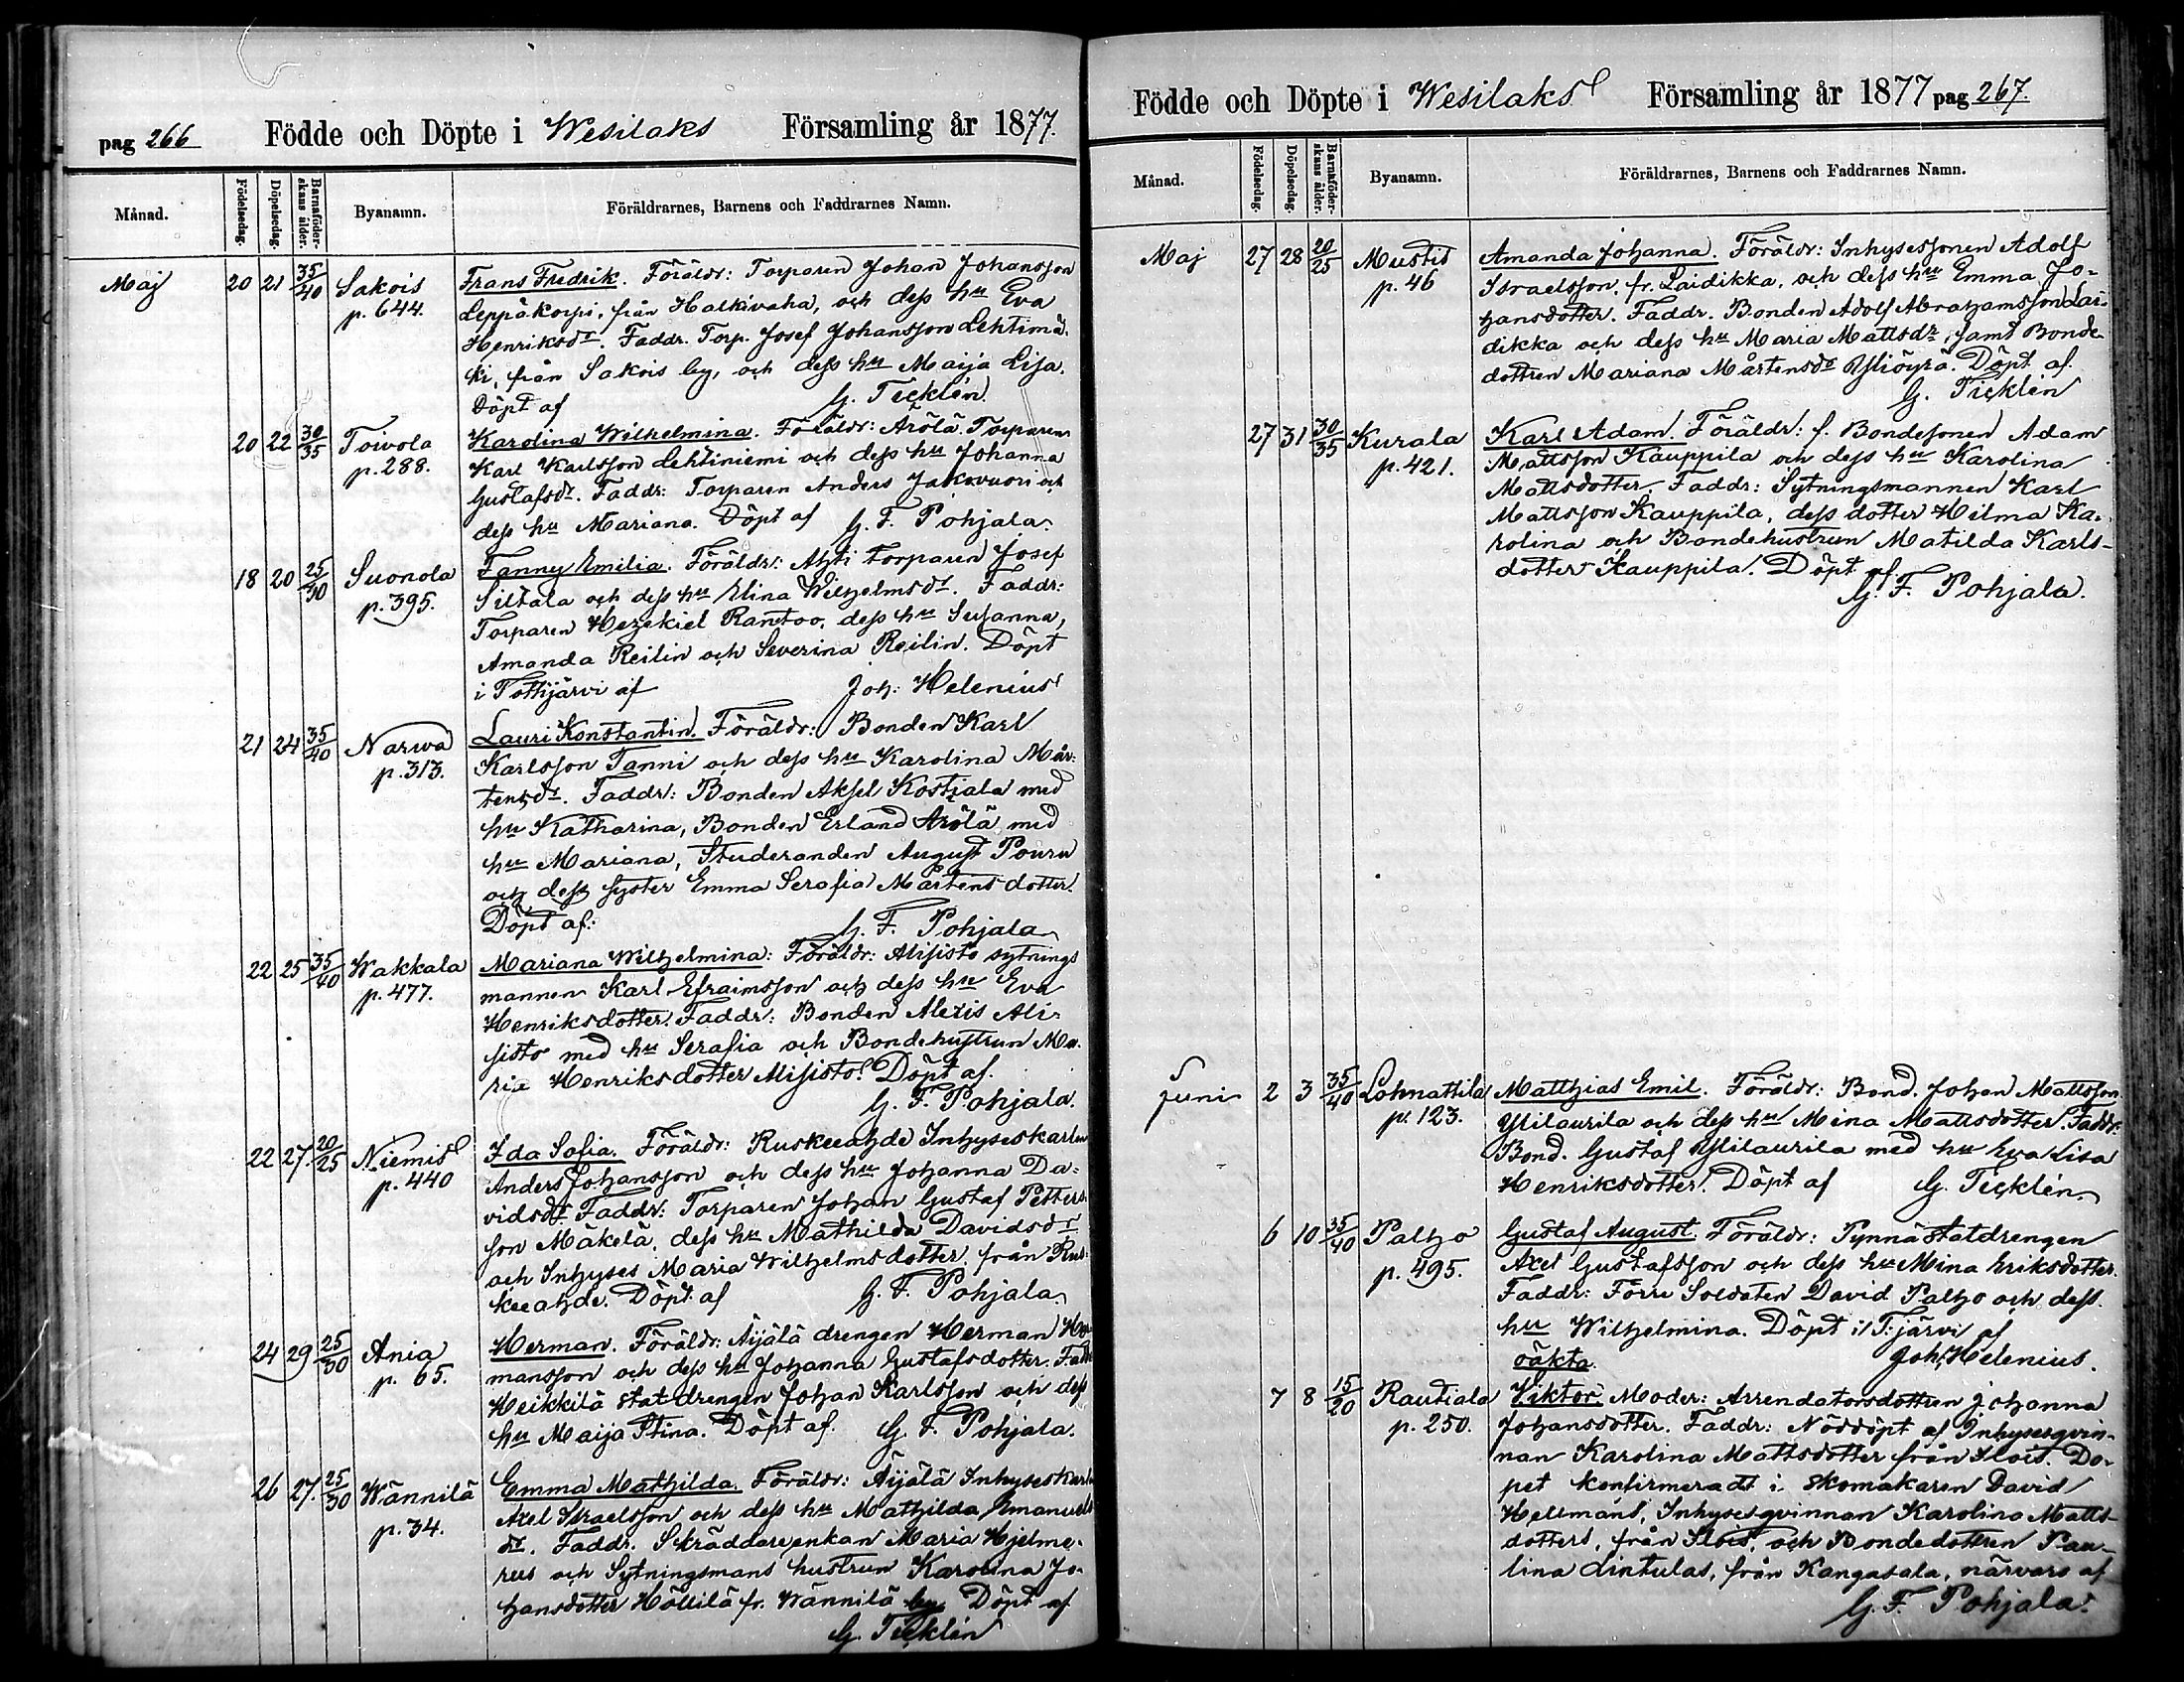 pag 266 Födde och Döpte i Wesilaks Församling år 1877.
Månad. Födelsedag. Döpelsedag. Barnaföderskans ålder. Byanamn. Föräldrarnes, Barnens och Faddrarnes Namn.
Maj 20 21 35/40 Sakois Frans Fredrik. Föräldr: Torparen Johan Johansson
p. 644. Leppäkorpi, från Halkivaha, och dess hu Eva
Henriksdr. Faddr. Torp. Josef Johansson Lehtimä-
ki, från Sakois by, och dess hu Maija Lisa.
Döpt af G. Ticklén.
20 22 30/35 Toivola Karolina Wilhelmina. Föräldr: Arölä Torparen
p. 288. Karl Karlsson Lehtiniemi och dess hu Johanna
Gustafsdr. Faddr: Torparen Anders Jakovuori och
dess hu Mariana. Döpt af G. F. Pohjala.
18 20 25/30 Suonola Fanny Emilia. Föräldr: Ahti torparen Josef
p. 395. Siltala och dess hu Elina Wilhelmsdr. Faddr:
Torparen Hezekiel Rantoo, dess hu Susanna,
Amanda Reilin och Severina Reilin. Döpt
i Tottijärvi af Joh: Helenius
21 24 35/40 Narwa Lauri Konstantin. Föräldr: Bonden Karl
p. 313. Karlsson Tanni och dess hu Karolina Mår-
tensdr. Faddr: Bonden Aksel Kostiala med
hu Katharina, Bonden Erland Arölä med
hu Mariana, Studeranden August Pouru
och dess syster Emma Serafia Mårtensdotter.
Döpt af: G. F. Pohjala
22 25 35/40 Wakkala Mariana Wilhelmina: Föräldr: Alisisto sytnings
p. 477. mannen Karl Efraimsson och dess hu Eva
Henriksdotter. Faddr: Bonden Alexis Ali-
sisto med hu Serafia och Bondehustrun Ma-
ria Henriksdotter Alisisto. Döpt af.
G. F. Pohjala.
22 27. 20/25 Niemis Ida Sofia. Föräldr: Ruskeeahde Inhyseskarlen
p. 440 Anders Johansson och dess hu Johanna Da-
vidsdr. Faddr: Torparen Johan Gustaf Petters-
son Mäkelä, dess hu Mathilda Davidsdr
och Inhyses Maria Wilhelmsdotter från Rus-
keeahde. Döpt af G. F. Pohjala.
24 29 25/30 Ania Herman. Föräldr: Äijälä drengen Herman Her-
p. 65. mansson och dess hu Johanna Gustafsdotter. Faddr
Heikkilä statdrengen Johan Karlsson och dess
hu Maija Stina. Döpt af. G. F. Pohjala.
26 27. 25/30 Wännilä Emma Mathilda. Föräldr: Äijälä Inhyseskarlen
p. 34. Axel Israelsson och dess hu Mathilda Emanuels
dr. Faddr. Skräddareenkan Maria Hjelme-
rus och Sytningsmans hustrun Karolina Jo-
hansdotter Höllilä fr. Wännilä by. Döpt af
G. Ticklén
Födde och Döpte i Wesilaks Församling år 1877 pag 267.
Månad. Födelsedag. Döpelsedag. Barnaföderskans ålder. Byanamn. Föräldrarnes, Barnens och Faddrarnes Namn.
Maj 27 28 20/25 Mustis Amanda Johanna. Föräldr: Inhysessonen Adolf
p. 46 Israelsson, fr. Laidikka, och dess hu Emma Jo-
hansdotter. Faddr. Bonden Adolf Abrahamsson Lai-
dikka och dess hu Maria Mattsdr, samt Bonde-
dottren Mariana Mårtensdr Yliöyrä. Döpt af.
G. Ticklén
27 31 30/35 Kurala Karl Adam. Föräldr: f. Bondesonen Adam
p. 421. Mattsson Kauppila och dess hu Karolina
Mattsdotter. Faddr: Sytningsmannen Karl
Mattsson Kauppila, dess dotter Hilma Ka-
rolina och Bondehustrun Matilda Karls-
dotter Kauppila. Döpt af
G. F. Pohjala.
Juni 2 3 35/40 Lohnattila Matthias Emil. Föräldr: Bond. Johan Mattsson
p. 123. Ylilaurila och dess hu Mina Mattsdotter. Faddr.
Bond. Gustaf Ylilaurila med hu Eva Lisa
Henriksdotter. Döpt af G. Ticklén.
6 10 35/40 Palho Gustaf August. Föräldr: Pynnä statdrengen
p. 495. Axel Gustafsson och dess hu Mina Eriksdotter.
Faddr: Förre Soldaten David Palho och dess
hu Wilhelmina. Döpt i T:järvi af
oäkta. Joh: Helenius.
7 8 15/20 Rautiala Viktor. Moder: Arrendatorsdottren Johanna
p. 250. Johansdotter. Faddr: Nöddöpt af Inhysesqvin-
nan Karolina Mattsdotter från Ilois. Do-
pet konfirmeradt i skomakaren David
Hellmans, Inhysesqvinnan Karolina Matts-
dotters, från Ilois, och Bondedottren Pau-
lina Lintulas, från Kangasala, närvaro af
G. F. Pohjala.